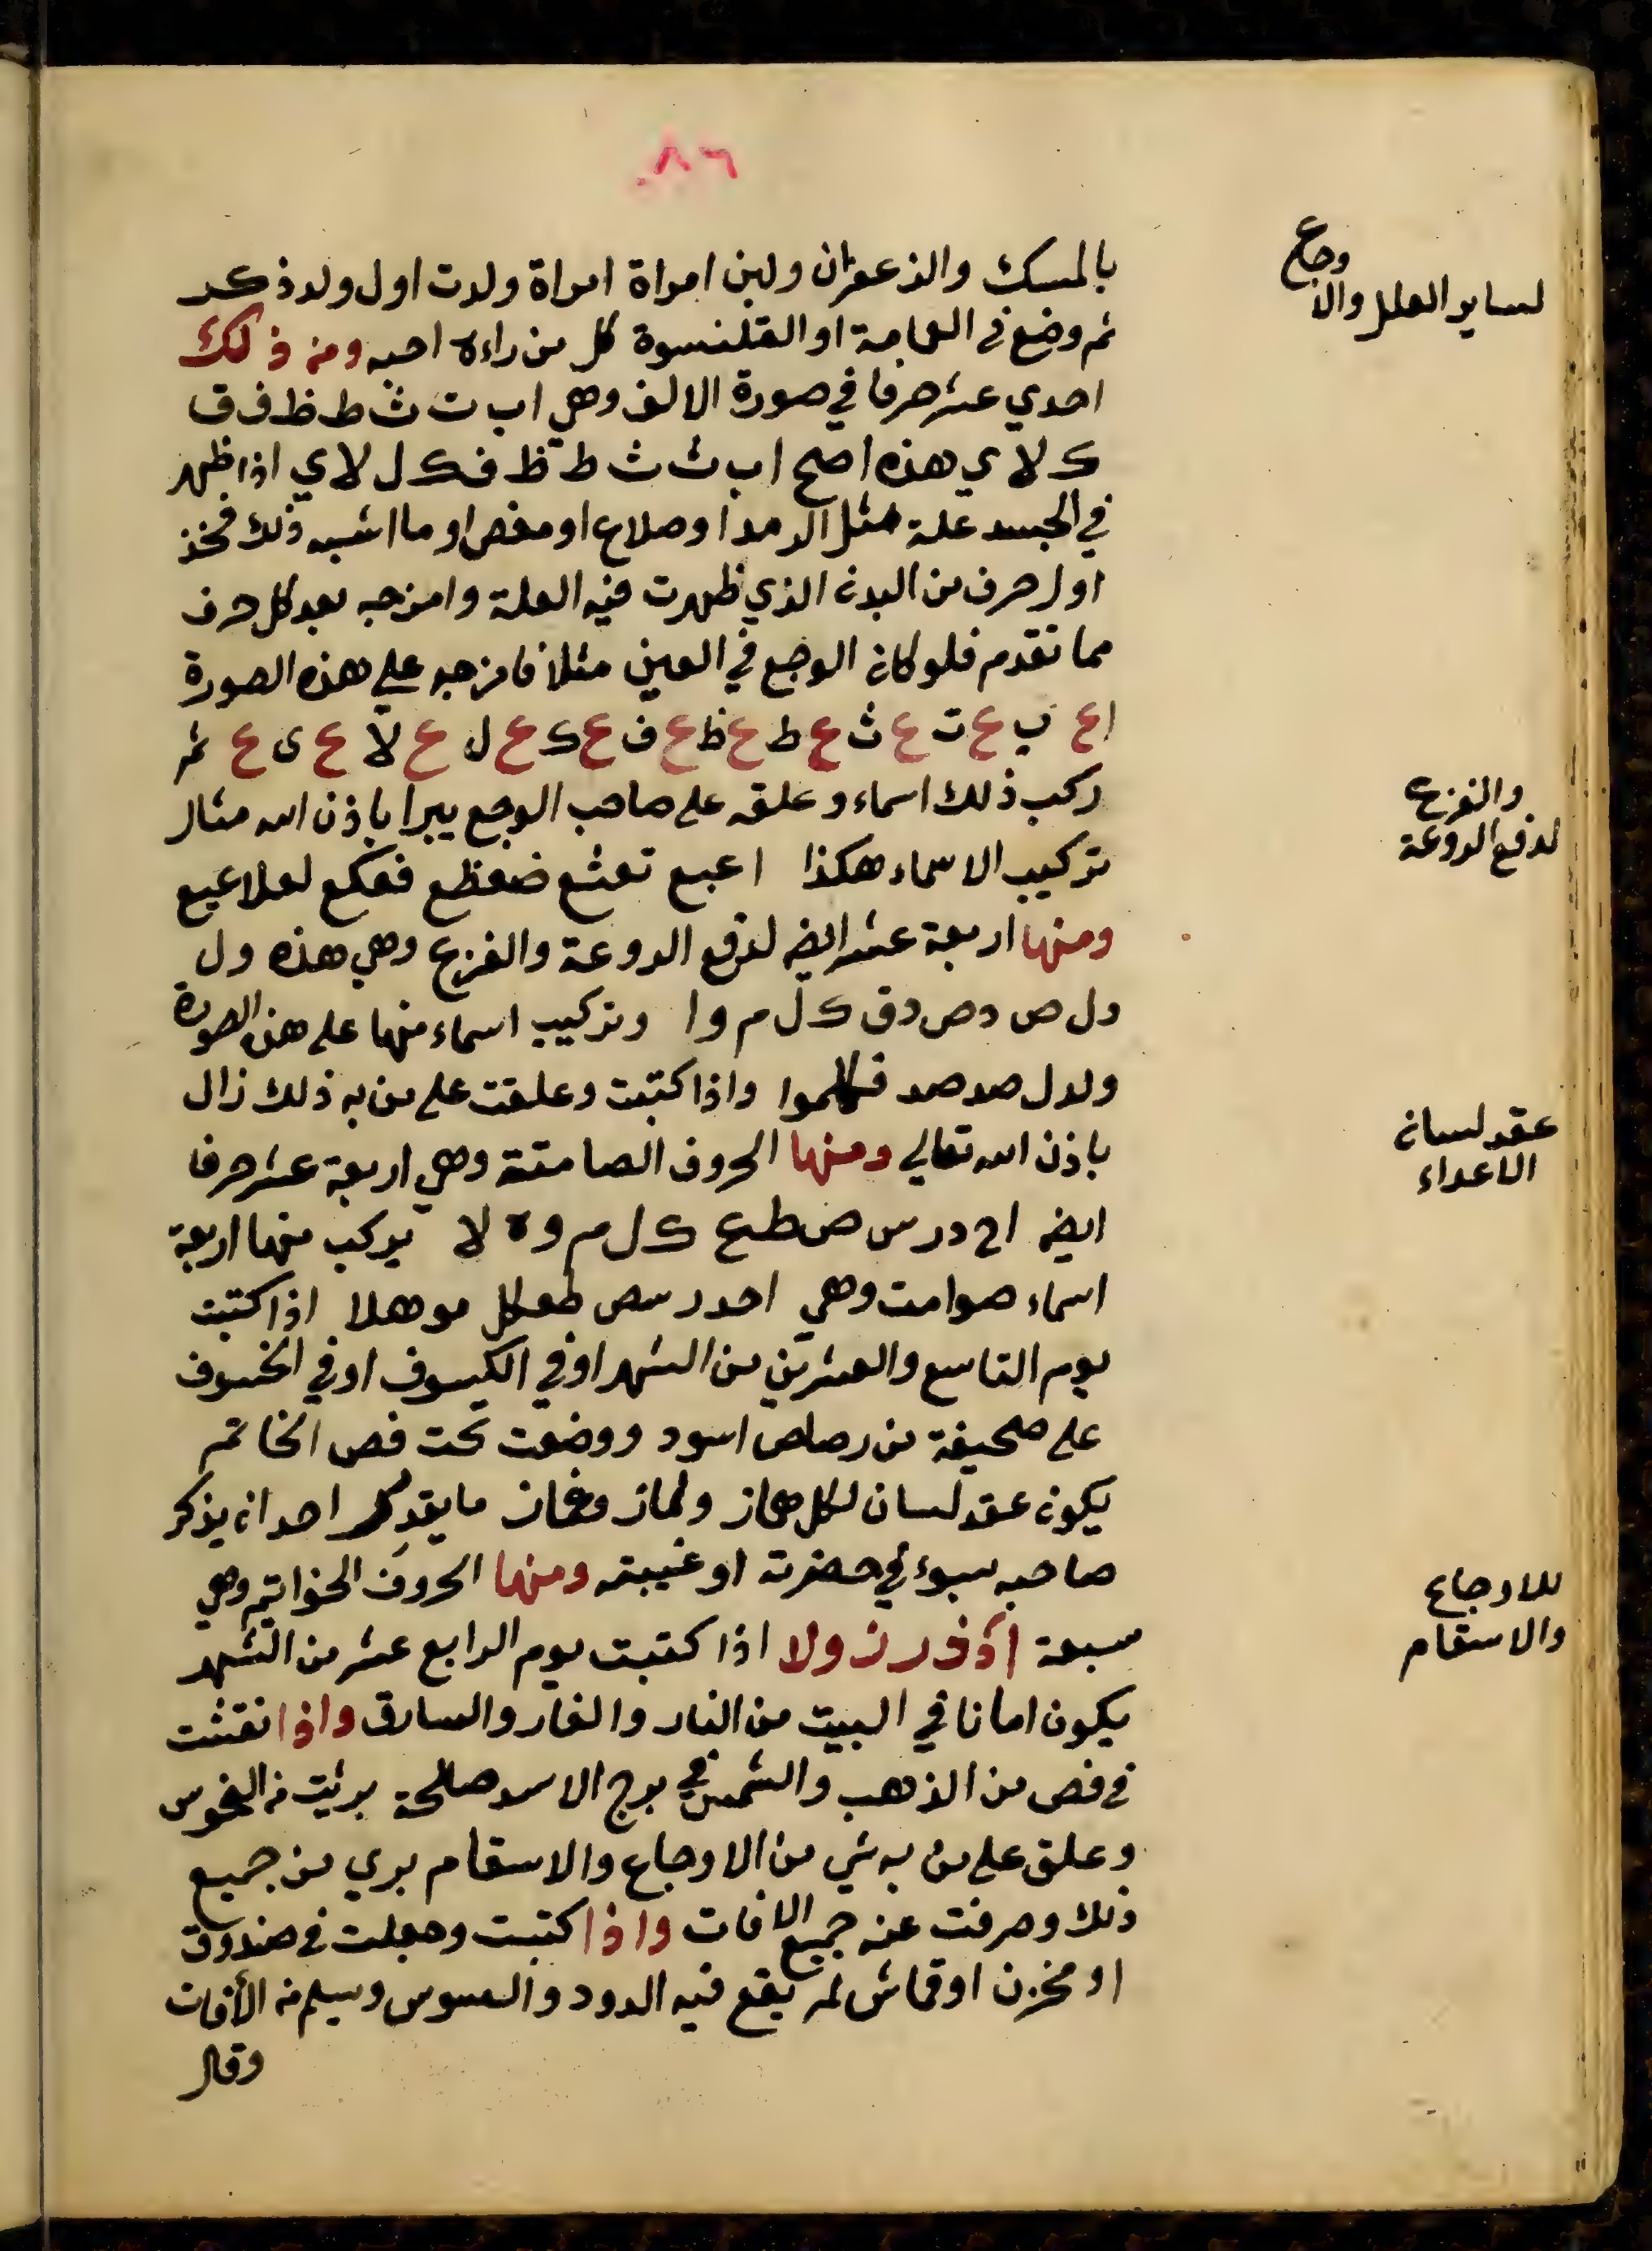 ٨٦
بالمسك والزعفران ولبن امراة امراة ولدت اول ولد ذكر
ثم وضع في العمامة او القلنسوة كل من راءه احبه ومن ذلك
احدي عشر حرفا في صورة الالف وهي ا ب ت ث ط ظ ف ق
ك لا ي هذه اصح ا ب ت ث ط ظ ف ك ل لا ي اذا ظهر
في الجسد علة مثل الرمد او صداع او مغص او ما اشبه ذلك فخذ
اول حرف من البدن الذي ظهرت فيه العلة وامزجه بعد كل حرف
مما تقدم فلو كان الوجع في العين مثلا فامزجه علي هذه الصورة
ا ع ب ع ت ع ث ع ط ع ظ ع ف ع ك ع ل ع لا ع ى ع ثم
ركب ذلك اسماء وعلقه على صاحب الوجع يبرا باذن الله مثال
تركيب الاسماء هكذا اعبع تعثع ضعظع فعكع لعلاعيع
ومنها اربعة عشر ايضه لدفع الروعة والفزع وهي هذه ول
دل ص د ص د ق ك ل م وا وتركيب اسماء منها على هذه الصورة
ولدل صد صد قكلموا واذا كتبت وعلقت على من به ذلك زال
باذن الله تعالي ومنها الحروف الصامتة وهي اربعة عشر حرفا
ايضه ا ح د ر س ص ط ع ك ل م و ه لا يركب منها اربعة
اسماء صوامت وهي احدر سص طعكل موهلا اذا كتبت
يوم التاسع والعشرين من الشهر او في الكسوف او في الخسوف
على صحيفة من رصاص اسود ووضعت تحت فص الخاتم
يكون عقد لسان لكل هماز ولماز وغماز ما يقدر احد ان يذكر
صاحبه بسوء في حضرته او غيبته ومنها الحروف الخواتيم وهي
سبعة ا د ذ ر ز و لا اذا كتبت يوم الرابع عشر من الشهر
يكون امانا في البيت من النار والفار والسارق واذا نقشت
في فص من الذهب والشمس في برج الاسد صالحة بريت من النحوس
وعلق على من به شي من الاوجاع والاسقام بري من جميع
ذلك وصرفت عنه جميع الافات واذا كتبت وجعلت في صندوق
او مخزن او قماش لم يقع فيه الدود والسوس وسلم من الأفات
وقال
لساير العلل والاوجاع
لدفع الروعة
والفزع
عقد لسان
الاعداء
للاوجاع
والاسقام